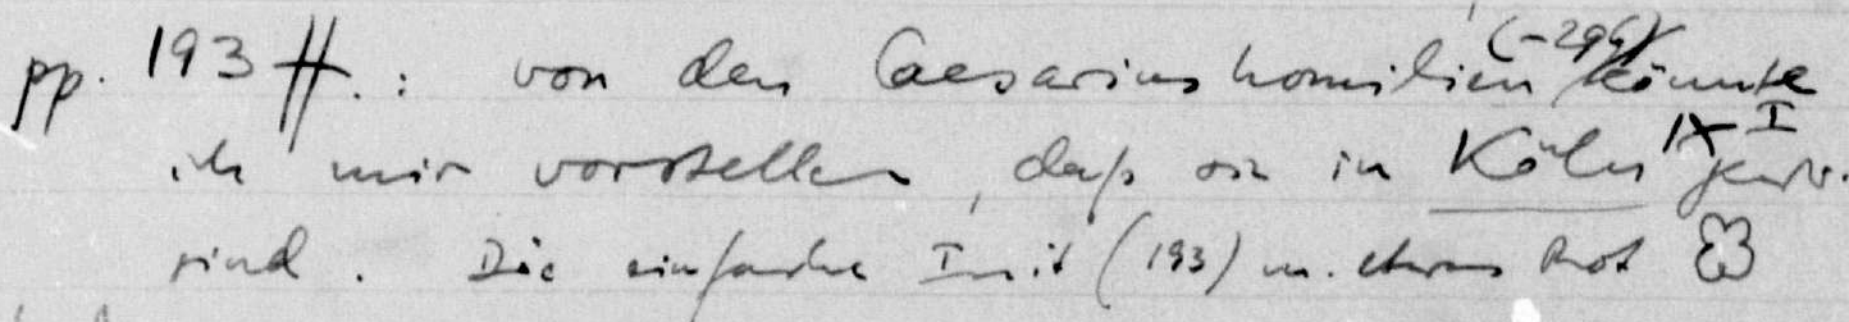 pp. 193 ff.: von den Caesariushomilien (-294) könnte
ich mir vorstellen, daß sie in Köln IX I geschr.
sind. Die einfache Init (193) m. etwas Rot